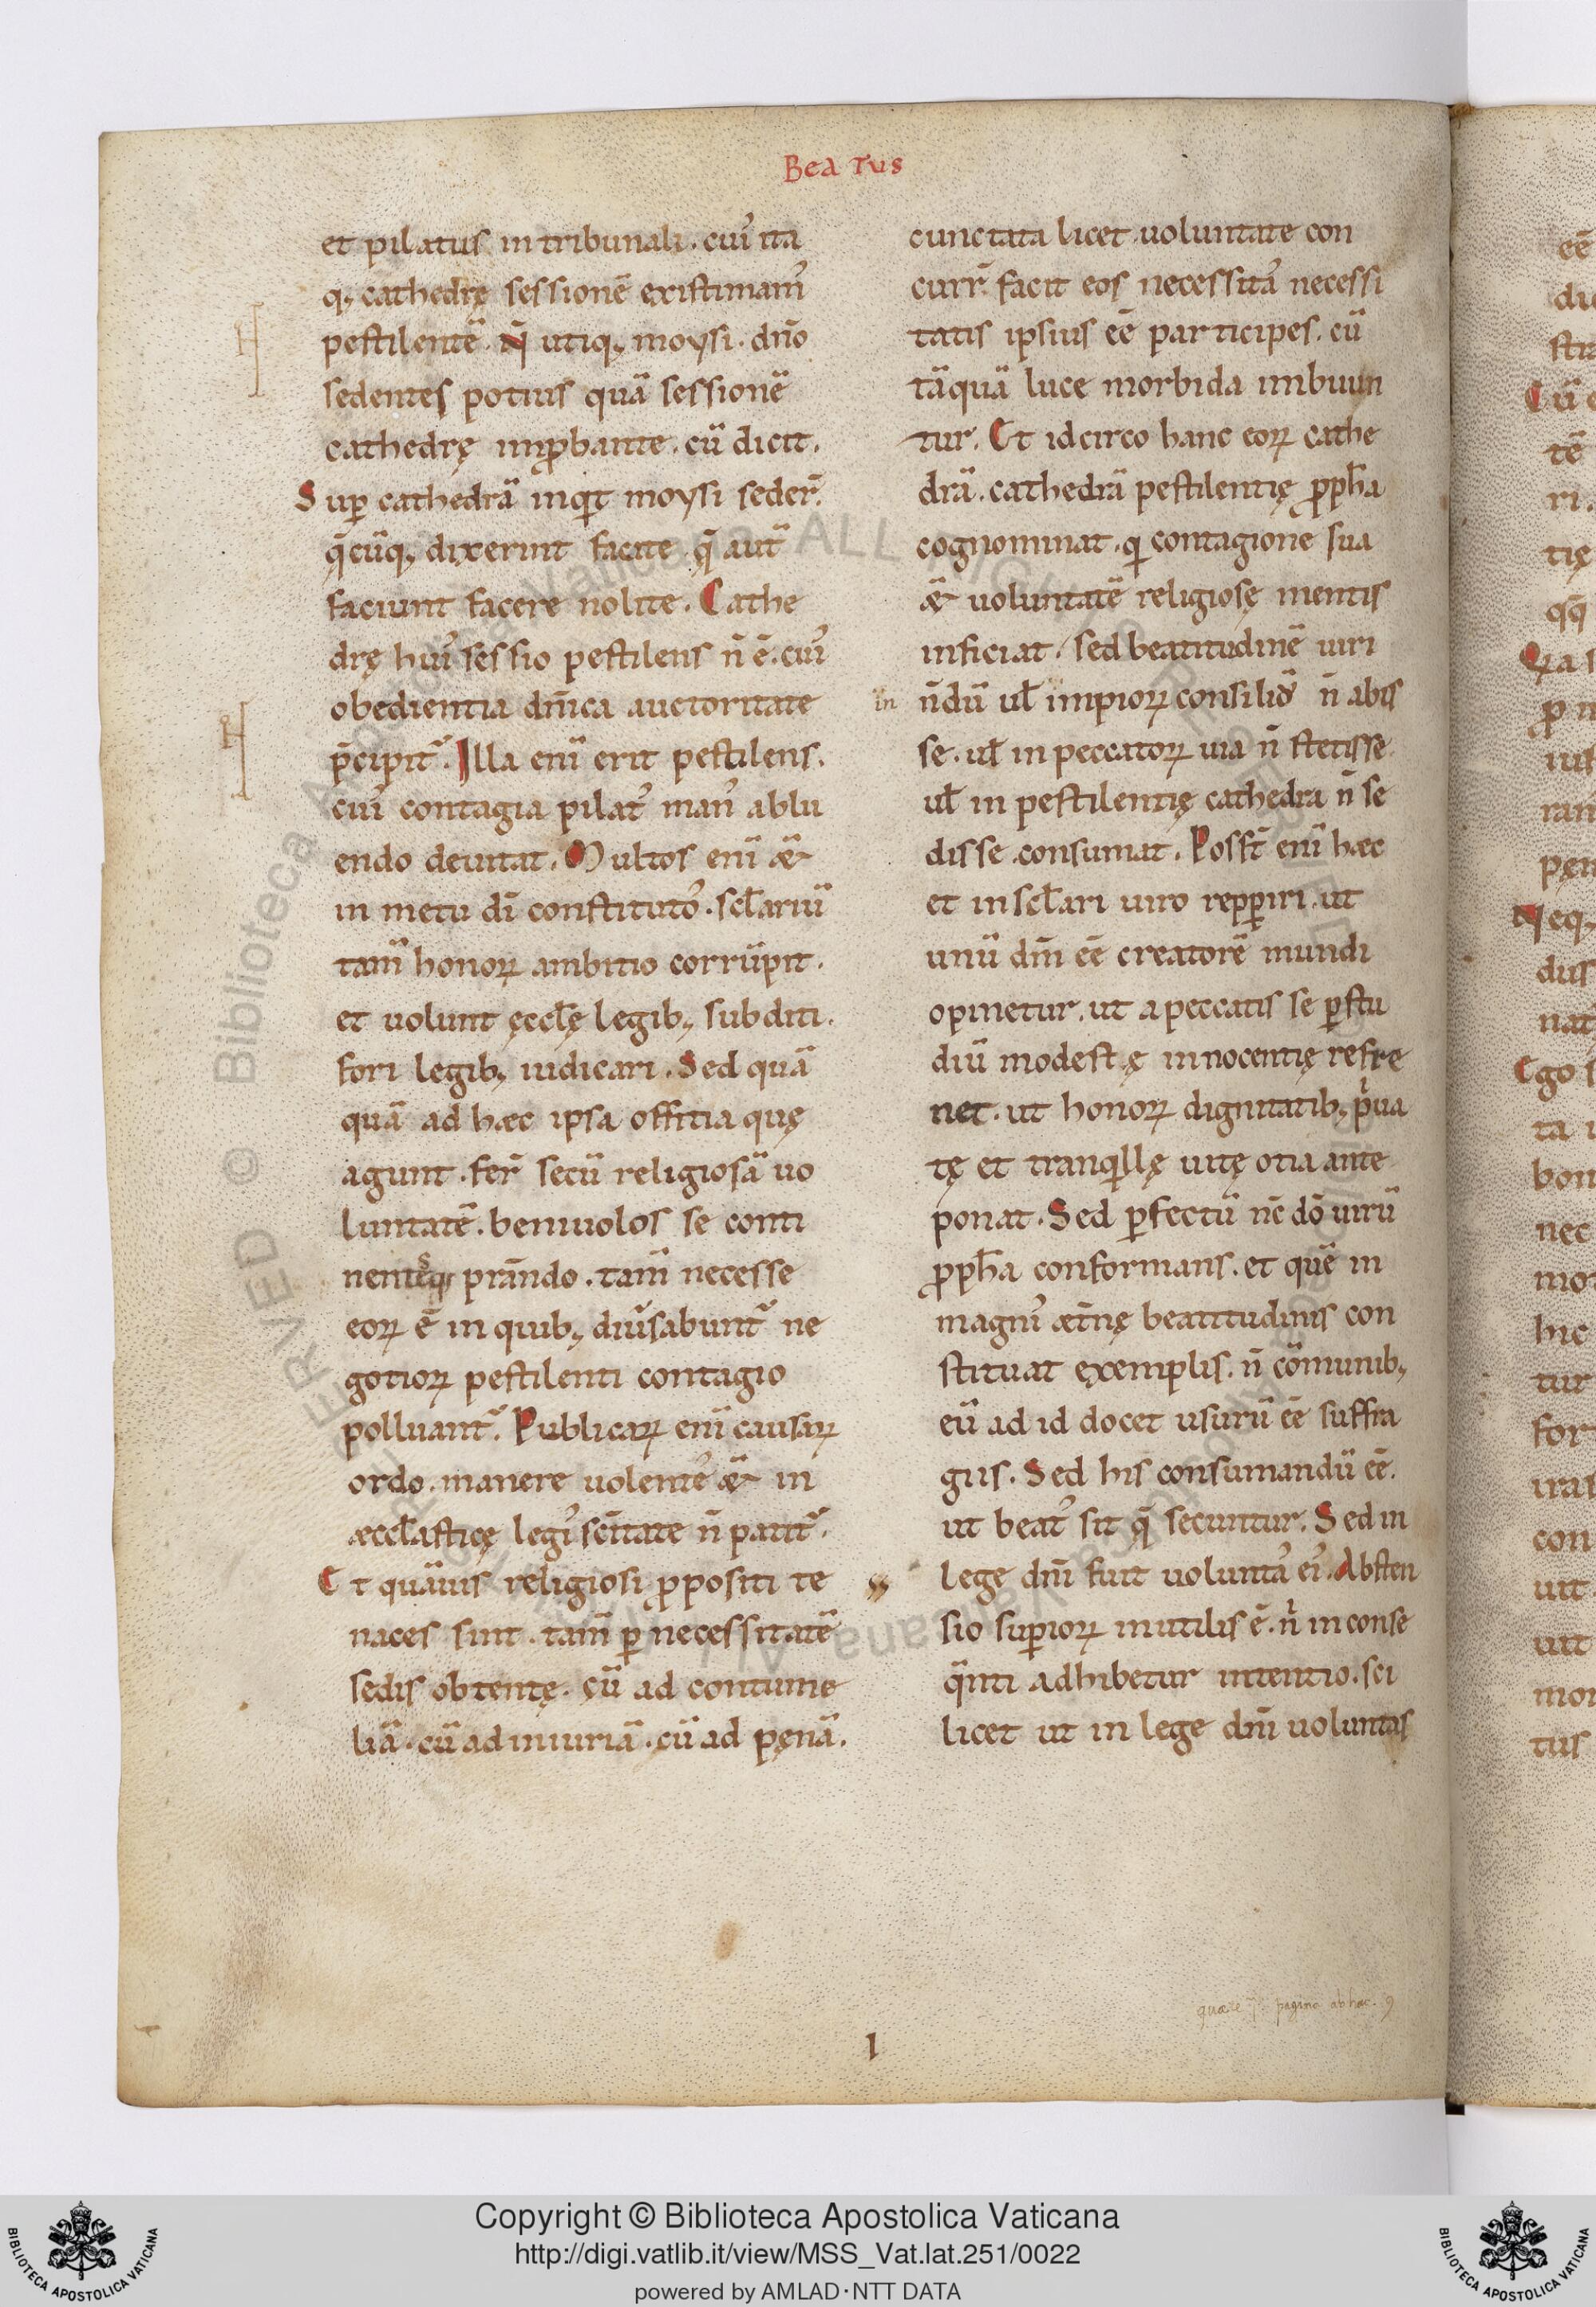 Beatus
et pilatus in tribunali. cui᾽ ita
q; cathedrę sessionē existimam᾽
pestilentē. N̄ utiq; moysi. dn̄o
sedentes potius quā sessionē
cathedrę inꝓbante. cū dicit.
Suꝑ cathedrā inqͥt moysi seder̄.
q̄cūq; dixerint facite. q̄ aut̄
faciunt facere nolite. Cathe
drę hui᾽ sessio pestilens n̄ ē. cui᾽
obedientia dn̄ica auctoritate
p̄cipit᷑. Illa eni̅ erit pestilens.
cui᾽ contagia pilat᾽ man᾽ ablu
endo deuitat. Multos eni̅ æ̅
in metu dī constituto᾽. scl̄ariū
tam̅ honoꝝ ambitio corrūpit.
et uolunt ęccl̄ę legib; subditi.
fori legib; iudicari. Sed quā
quā ad hæc ipsa offitia quę
agunt. fer̄ secū religiosā uo
luntatē. beniuolos se conti
prān̄do. tam̅ necesse
eoꝝ ē in quib; diu᷑sabunt᷑ ne
gotioꝝ pestilenti contagio
polluant᷑. Publicaꝝ eni̅ causaꝝ
ordo. manere uolente᾽ æ̅ in
æccl̄asticę legi᾽ sc̄itate n̄ patit᷑.
Et quāuis religiosi ꝓpositi te
naces sint. tam̅ ꝑ necessitatē
sedis obtentę. cū ad contume
liā. cū ad iniuriā. cū ad pęnā.
cunctata licet uoluntate con
curr̄. facit eos necessita᾽ necessi
tatis ipsius eē participes. cū
tāquā luce morbida imbuun
tur. Et idcirco hanc eoꝝ cathe
drā. cathedrā pestilentię ꝓph̄a
cognominat. qͥ contagione sua
æ̅ uoluntatē religiosę mentis
inficiat. sed beatitudinē uiri
in n̄dū ul̄ impioꝝ consilio n̄ abis
se. ul̄ in peccatoꝝ uia n̄ stetisse.
ul̄ in pestilentię cathedra n̄ se
disse. consumat. Posst̄ eni̅ hæc
et in scl̄ari uiro repꝑiri. ut
unū dm̄ eē creatorē mundi
opinetur. ut a peccatis se ꝑ stu
diū modestę innocentię refre
net. ut honoꝝ dignitatib; pͥua
tę et tranqͥllę uitę otia ante
ponat. Sed ꝑfectū nc̄ dō uirū
ꝓph̄a conformans. et quē in
magni᾽ æt̄nę beatitudinis con
stituat exemplis. n̄ cōmunib;
eū ad id docet usurū eē suffra
giis. Sed his consumandū eē.
ut beat᾽ sit q̄ secuntur. Sed in
lege dn̄i fuit uolunta᾽ ei᾽. Absten
sio suꝑioꝝ inutilis ē. nͥ in conse
q̄nti adhibetur intentio. sci
licet ut in lege dn̄i uoluntas
I
Copyright © Biblioteca Apostolica Vaticana
http://digi.vatlib.it/view/MSS_Vat.lat.251/0022
powered by AMLAD·NTT DATA